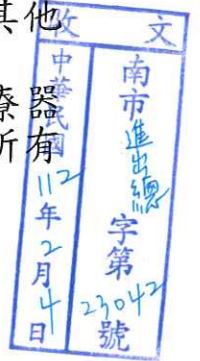 其他
療器
所有
收文
中華民國112年2月4日
南市進出總字第23042號